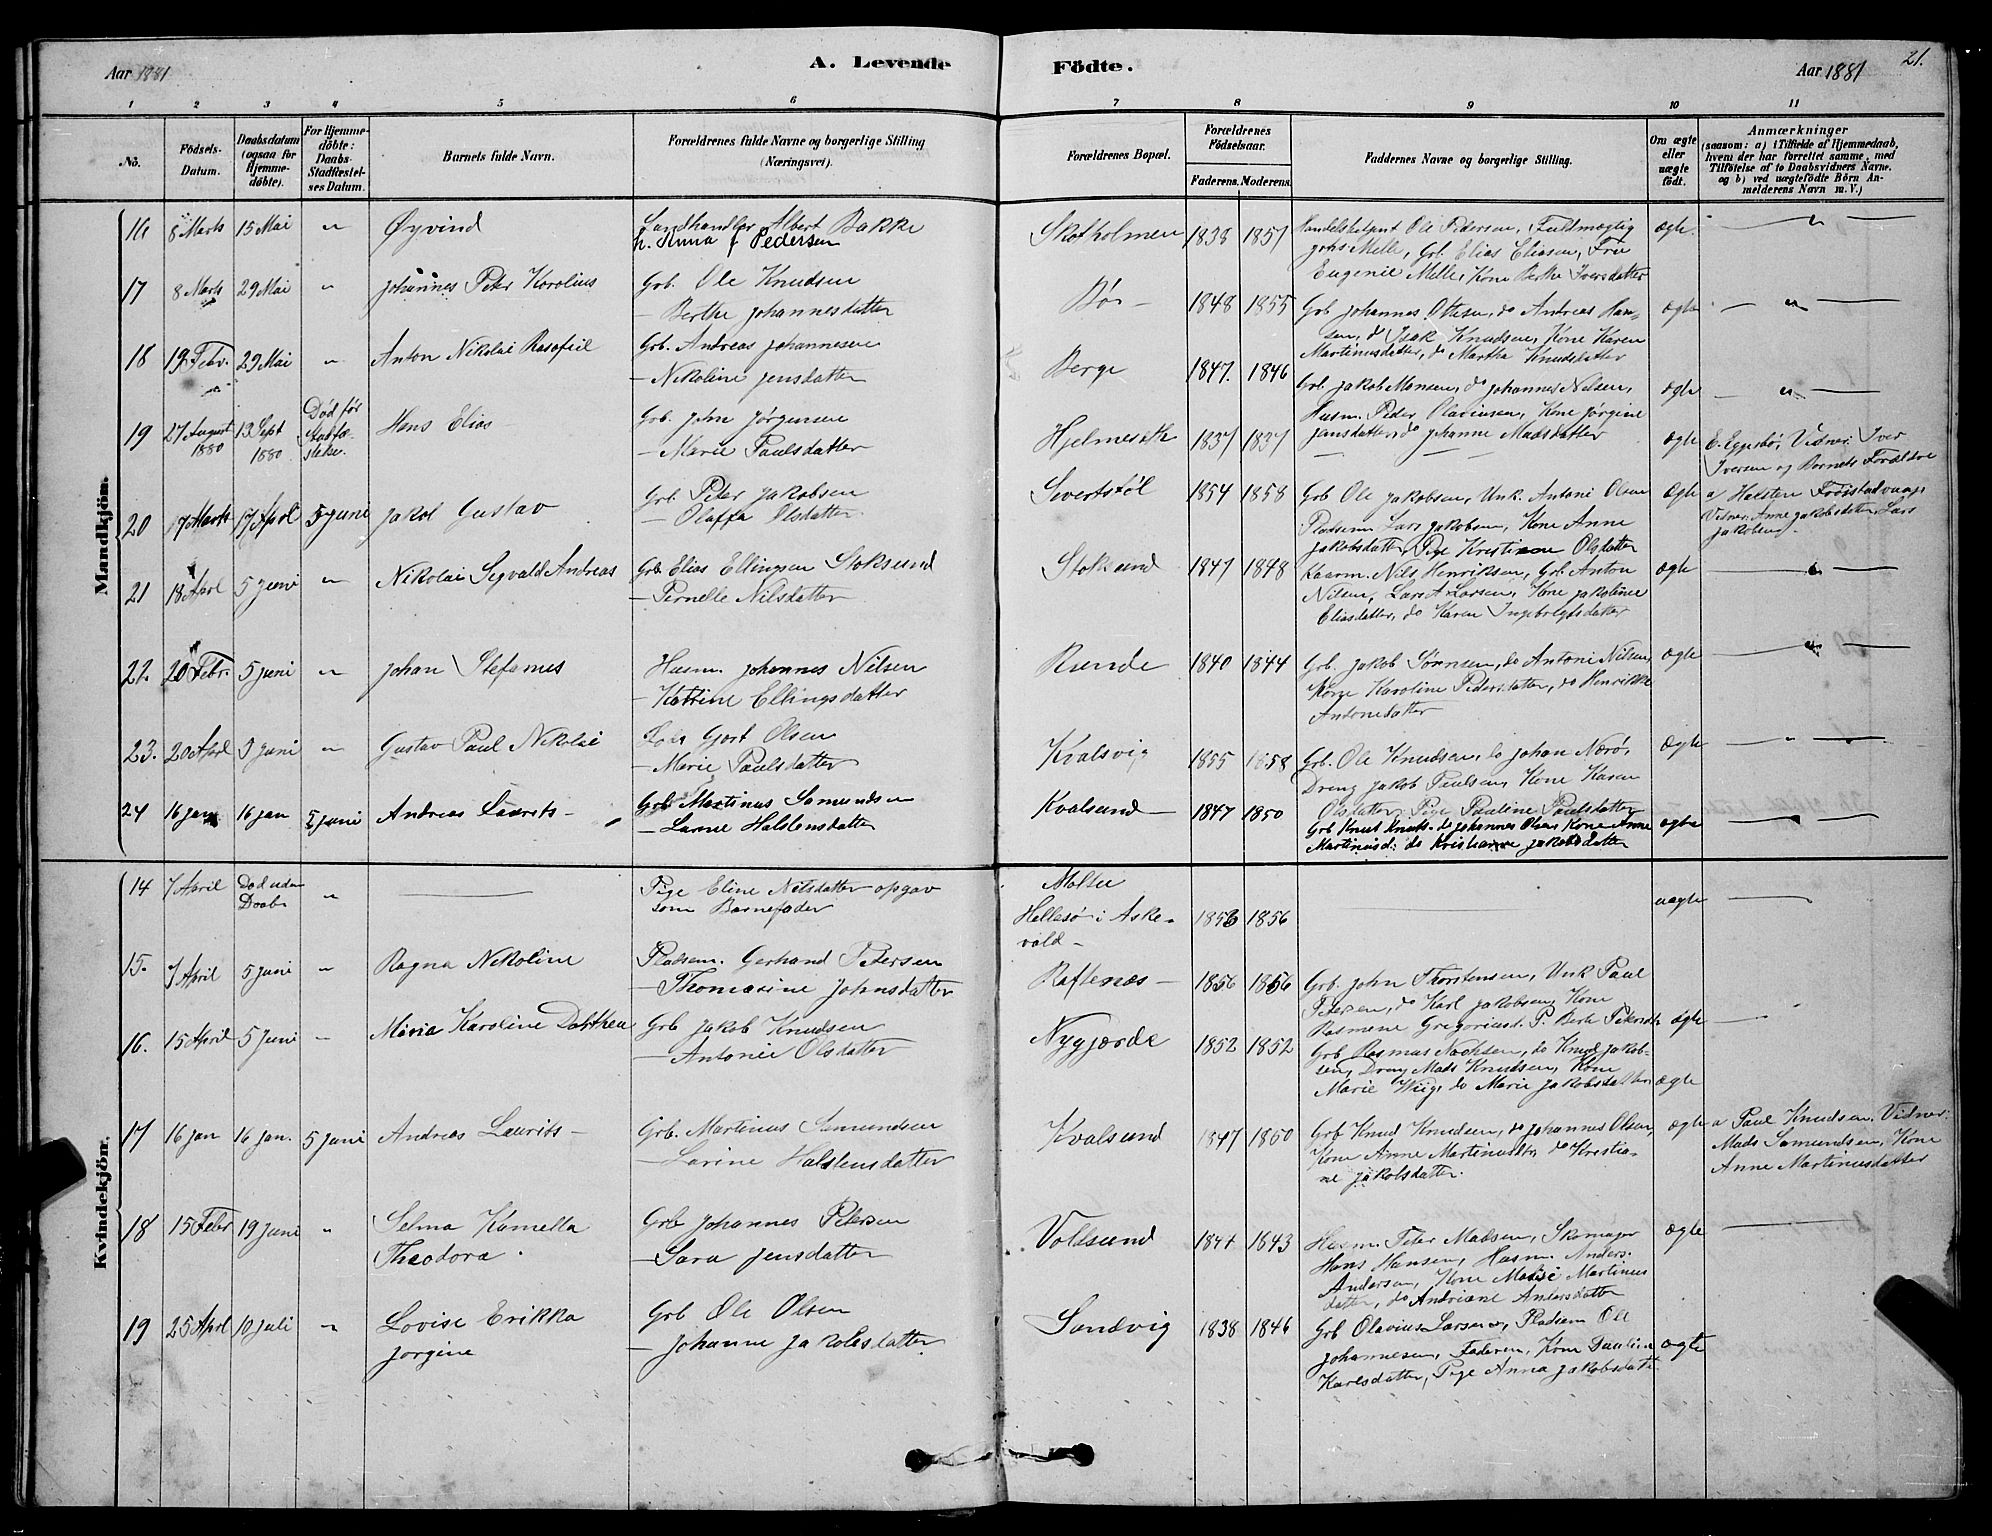 Aar 1881
A. Levende Födte.
Aar 1881
21.
1 2 3 4 5 6 7 8 9 10 11
No.
Födsels-Datum.
Daabsdatum (ogsaa for Hjemmedöbte).
For Hjemmedöbte: Daabs-Stadfæstelses Datum.
Barnets fulde Navn.
Forældrenes fulde Navne og borgerlige Stilling (Næringsvei).
Forældrenes Bopæl.
Forældrenes Födselsaar.
Faderens. Moderens.
Faddernes Navne og borgerlige Stilling.
Om ægte eller uægte födt.
Anmærkninger
(saasom: a) i Tilfælde af Hjemmedaab, hvem der har forrettet samme, med Tilföielse af to Daabsvidners Navne, og b) ved uægtefödte Börn Anmelderens Navn m. V.)
Mandkjön.
16 8 Marts 15 Mai " Øyvind
Landhandler Albert Bakke
h. Anna f Pedersen
Skotholmen 1838 1857
Handelsbetjent Ole Pedersen, Fuldmægtig
Johs Melle, Grb. Elias Eliasen, Fru
Eugenie Melle, Kone Berthe Iversdatter
ægte. — " —
17 8 Marts 29 Mai " Johannes Peter Karolius
Grb. Ole Knudsen
— Berthe Johannesdatter
Bø — 1848 1855
Grb Johannes Ottesen, do Andreas Han-
sen, do Isak Knudsen, Kone Karen
Martinusdatter, do Martha Knudsdatter
ægte — " —
18 19 Febr. 29 Mai " Anton Nikolai
Grb. Andreas Johannesen
— Nikoline Jensdatter
Berge 1847. 1846
Grb. Jakob Monsen, do Johannes Nilsen,
Husm. Peder Olaviusen, Kone Jørgine
Jensdatter, do Johanne Madsdatter
ægte — " —
19 27 August 1880 13 Sept 1880 Død før Stadfæ-stelse. Hans Elias
Grb. John Jørgensen
— Marie Paulsdatter
1837 1837
— — —
ægte E. Eggesbø, Vidner: Iver
Iversen og Barnets Forældre
20 17 Marts 17 April 5 Juni Jakob Gustav
Grb. Peter Jakobsen
— Olaffa Olsdatter.
Sivertstøl 1854 1858
Grb Ole Jakobsen, Unk. Antoni Olsen
Pladsem Lars Jakobsen, Kone Anne
Jakobsdatter, Pige Kristiane Olsdatter
ægte a) Halsten
Vidner: Anne Jakobsdatter, Lars
Jakobsen.
21 18 April 5 Juni " Nikolai Sigvald Andreas
Grb. Elias Ellingsen Stoksund
— Pernelle Nilsdatter
Stoksund 1847 1848
Kaarm. Nils Henriksen, Grb. Anton
Nilsen, Lars A Larsen, Kone Jakobine
Eliasdatter, do Karen Ingebrigtsdatter
ægte — " —
22. 20 Febr. 5 Juni " Johan Stefanus
Husm. Johannes Nilsen
— Katrine Ellingsdatter
Runde 1840 1844
Grb. Jakob Sørensen, do Antoni Nilsen,
Kone Karoline Pedersdatter, do Henrikke
Antonsdatter
ægte — " —
23. 20 April 5 Juni " Gustav Paul Nikolai
Olsen
— Marie Paulsdatter
Kvalsvig 1855 1858
Grb. Ole Knudsen, do Johan Nærø,
Dreng Jakob Paulsen, Kone Karen
Olsdatter, Pige Pauline Paulsdatter
ægte — " —
24 16 jan 16 jan 5 Juni Andreas Laurits —
Grb Martinus Samundsen
— Larine Halstensdatter
Kvalsund — 1847 1850
Grb Knut Knuts. do Johannes Olsen Kone Anne
Martinusd: do Kristianne Jakobsdatter
ægte — " —
Kvindekjön.
14 7 April Død uden Daab " —
Pige Eline Nilsdatter opgav
som Barnefader
Moltu
Hellesø i Aske-
vold — 1853 1856
uægte —
15. 7 April 5 Juni " Ragna Nikoline
Pladsem. Gerhard Petersen
— Thomasine Johnsdatter
Raftenæs — 1856 1856
Grb. John Thorstensen, Unk Paul
Petersen, do Karl Jakobsen, Kone
Rasmene Gregoriusd. P. Berte Petersdt.
ægte — "
16. 15 April 5 Juni " Maria Karoline Dorthea
Grb Jakob Knudsen
— Antonie Olsdatter
Nygjærde 1852 1852
Grb Rasmus, do Knud Jakob-
sen, Dreng Mads Knudsen, Kone
Marie Wiig, do Marie Jakobsdatter
ægte
17 16 jan 16 jan. 5 Juni Andreas Laurits —
Grb. Martinus Samundsen
— Larine Halstensdatter
Kvalsund 1847 1850
Grb Knud Knudsen, do Johannes Olsen,
Kone Anne Martinusdtr, do Kristia-
ne Jakobsdatter.
ægte a Paul Knudsen. Vidner:
Mads Samundsen, Kone
Anne Martinusdatter
18 15 Febr 19 Juni " Selma Kamella
Theodora.
Grb Johannes Petersen
— Sara Jensdatter
Voldsund 1844 1843
Husm. Peter Madsen, Skomager
Hans Hansen, Husm. Anders
Andersen, Kone Marie Martinus
datter, do Andriane Andersdatter
ægte —
19 25 April 10 Juli " Lovise Erikka
Jørgine
Grb Ole Olsen
— Johanne Jakobsdatter
Sandvig 1838 1846
Grb Olavius Larsen, Pladsem Ole
Johannesen, Faderen, Kone Pauline
Karlsdatter, Pige Anna Jakobsdatt.
ægte